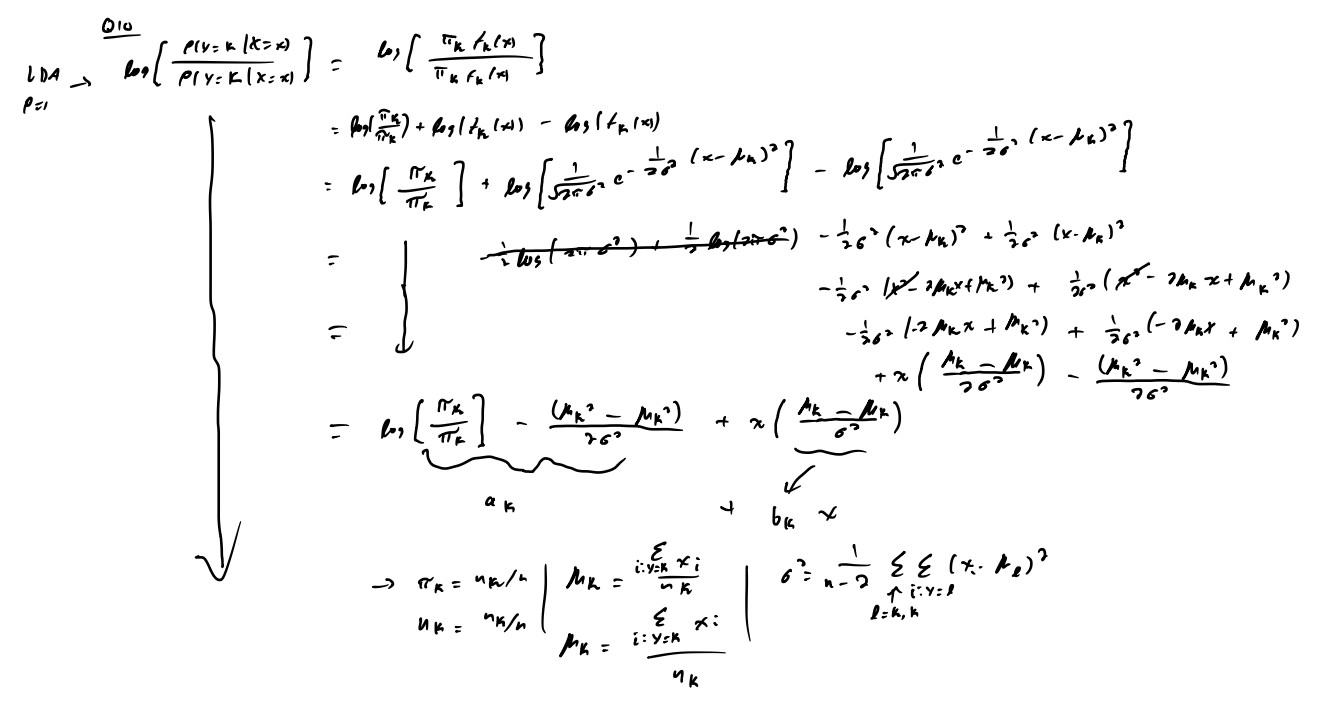 Q10
LDA P=1 → log[ P(Y=k|X=x) / P(Y=K|X=x) ] = log[ π_k f_k(x) / π_K f_K(x) ]
= log(π_k/π_K) + log(f_k(x)) - log(f_K(x))
= log[ π_k / π_K ] + log[ 1/√2πσ² e^{-1/2σ² (x-μ_k)²} ] - log[ 1/√2πσ² e^{-1/2σ² (x-μ_K)²} ]
= ↓ -1/2σ² (x-μ_k)² + 1/2σ² (x-μ_K)²
-1/2σ² (x² - 2μ_k x + μ_k²) + 1/2σ² (x² - 2μ_K x + μ_K²)
= -1/2σ² (-2μ_k x + μ_k²) + 1/2σ² (-2μ_K x + μ_K²)
+ x( (μ_k - μ_K) / 2σ² ) - (μ_k² - μ_K²) / 2σ²
= log[ π_k / π_K ] - (μ_k² - μ_K²) / 2σ² + x( (μ_k - μ_K) / σ² )
a_k + b_k x
→ π_k = n_k/n | μ_k = Σ_{i:Y=k} x_i / n_k | σ² = 1/(n-2) Σ_{l=k,K} Σ_{i:Y=l} (x_i - μ_l)²
n_K = n_K/n | μ_K = Σ_{i:Y=K} x_i / n_K